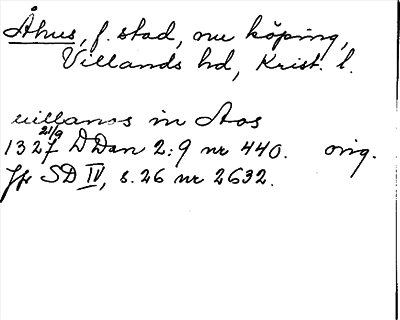 Åhus, f. stad, nu köping,
Villands hd, Krist. l.
villanos in Aos
1327 21/9 DDan 2:9 nr 440. orig.
Jfr SD IV, s. 26 nr 2632.